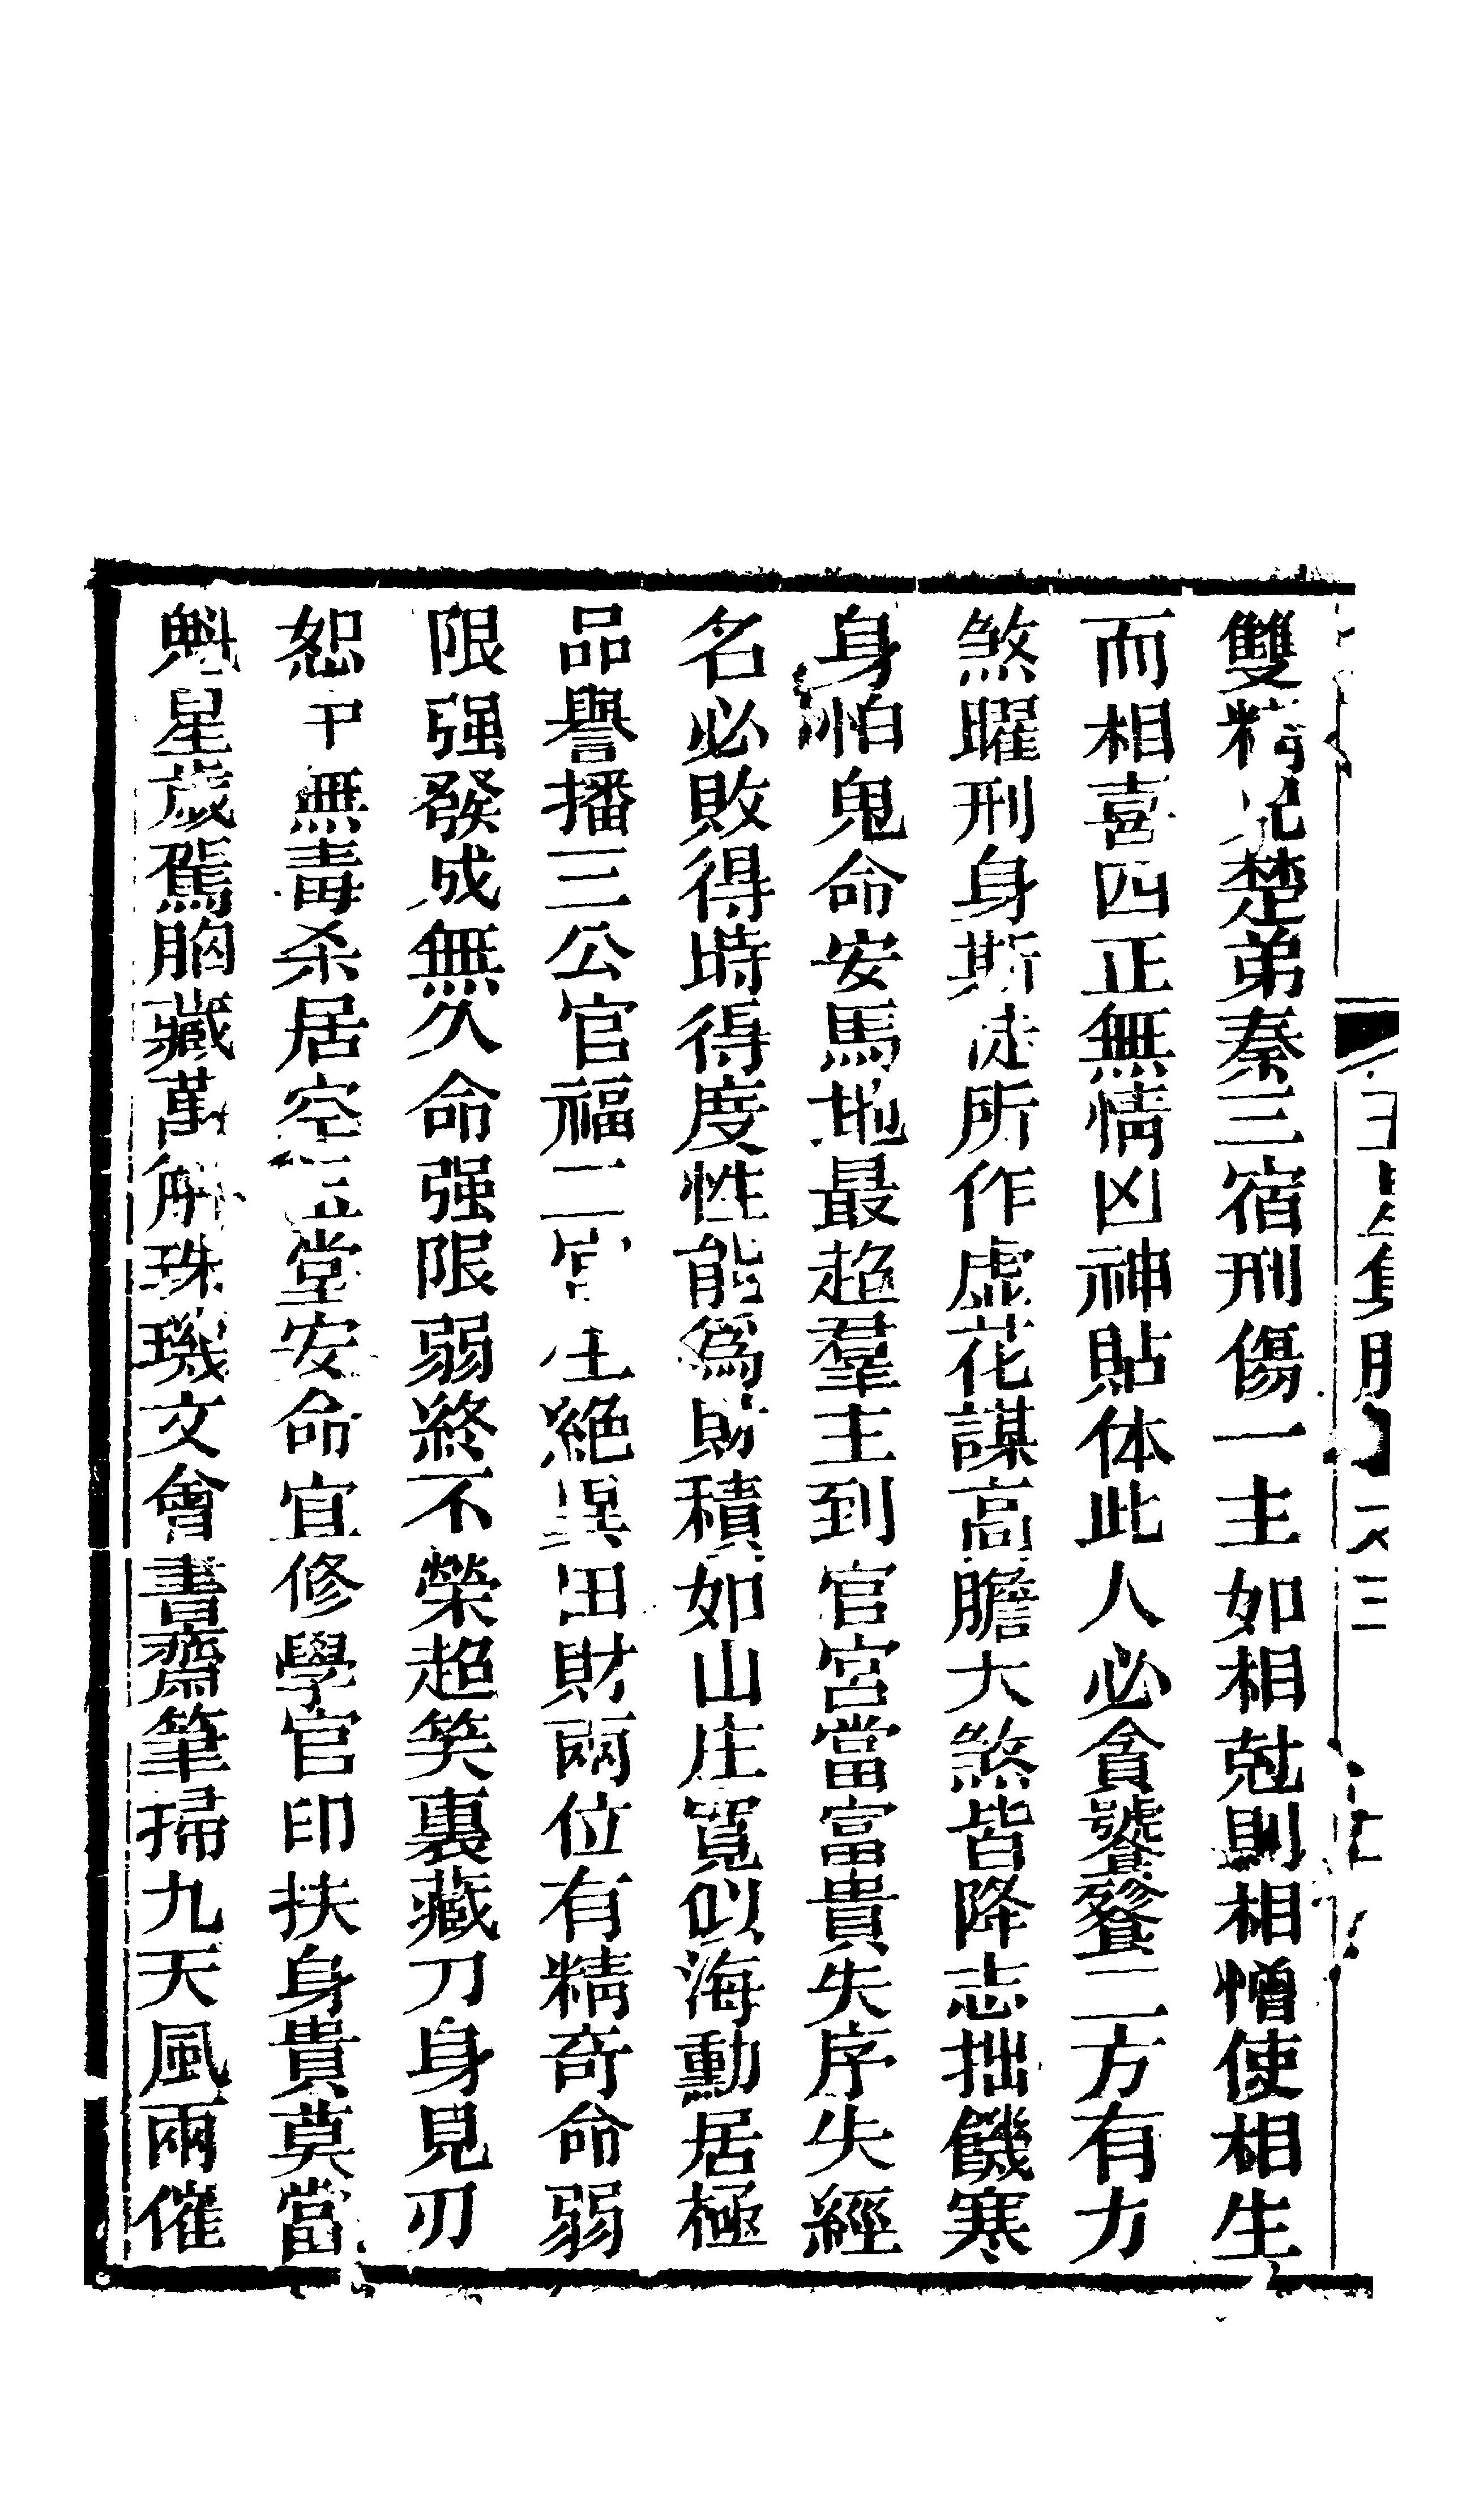 雙精兄楚弟秦三宿刑傷一主如相尅則相憎使相生
而相喜四正無情凶神貼体此人必貪饕餮二方有力
煞曜刑身斯徒所作虛花謀高膽大煞皆降志拙饑寒
身怕鬼命安馬地最超羣主到官宮當富貴失序失經
名必敗得時得度性能爲財積如山庄寬似海動居極
品譽播三公官福二宮主絕異田財兩位有精奇命弱
限强發成無久命强限弱終不榮超笑裏藏刀身見刃
恕中無毒杀居空玉堂安命宜修學官印扶身貴莫當
魁星歲駕胸藏萬斛珠璣文會書齋筆掃九天風兩催